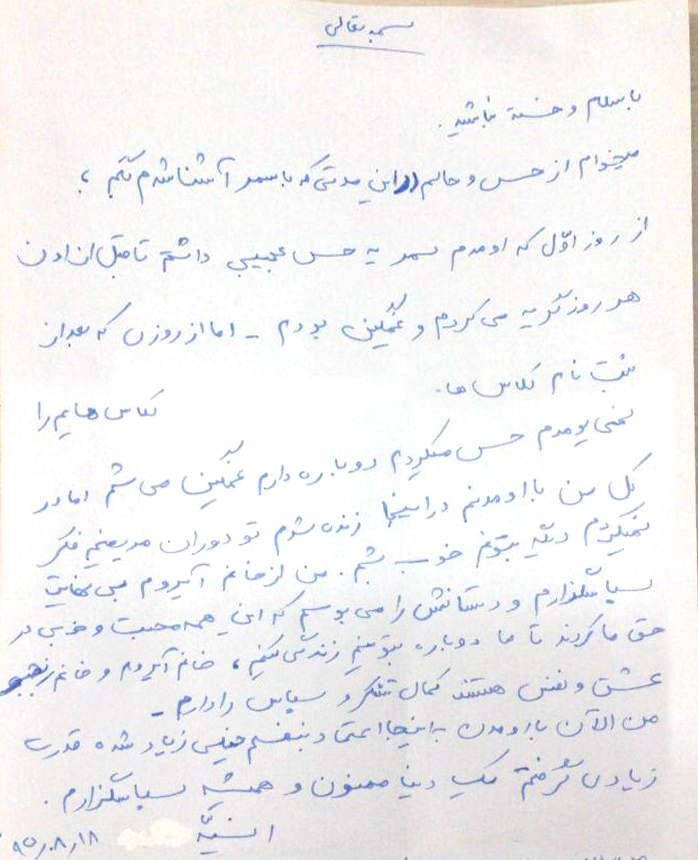 بسمه تعالی
با سلام و خسته نباشید.
میخوام از حس و حالم در این مدتی که با سمر آشنا شدم بگم،
از روز اوّل که اومدم سمر یه حس عجیبی داشتم تا قبل از اون
هر روز گریه می کردم و غمگین بودم - اما از روزی که بعد از
ثبت نام کلاس ها.
کلاس هایم را
نمی یومدم حس میکردم دوباره دارم غمگین می شم اما در
کل من با اومدنم در اینجا زنده شدم تو دوران مریضیم فکر
نمیکردم دیگه بتونم خوب بشم. من از خانم آبروم بی نهایت
سپاسگذارم و دستانش را می بوسم که این همه محبت و خوبی در
حق ما کردند تا ما دوباره بتونیم زندگی کنیم، خانم آبروم و خانم
عشق و نفس هستند کمال تشکر و سپاس را دارم -
من الآن با اومدن به اینجا اعتماد بنفسم خیلی زیاد شده قدرت
زیادی گرفتم یک دنیا ممنون و همیشه سپاسگزارم.
انسیّه ۹۵/۰۸/۱۸